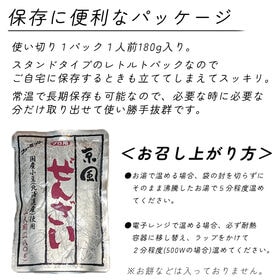 保存に便利なパッケージ
使い切り１パック１人前180g入り。
スタンドタイプのレトルトパックなので
ご自宅に保存するときも立ててしまえてスッキリ。
常温で長期保存も可能なので、必要な時に必要な
分だけ取り出せて使い勝手抜群です。
京風
ぜんざい
国産小豆(北海道産)使用
＜お召し上がり方＞
●お湯で温める場合、袋の封を切らずに
そのまま沸騰したお湯で５分程度温め
てください。
●電子レンジで温める場合、必ず耐熱
容器に移し替え、ラップをかけて
２分程度(500Wの場合)温めてください。
※お餅などは入っておりません。